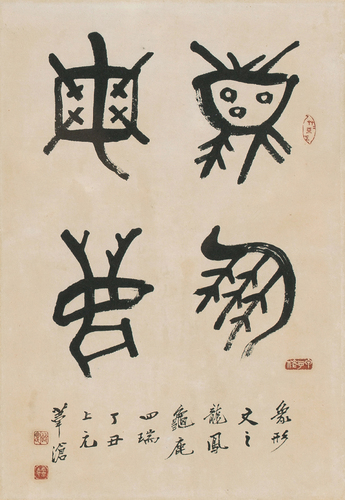 龍鳳
龜鹿
象形
文之
龍鳳
龜鹿
四瑞
丁丑
上元
葦滄